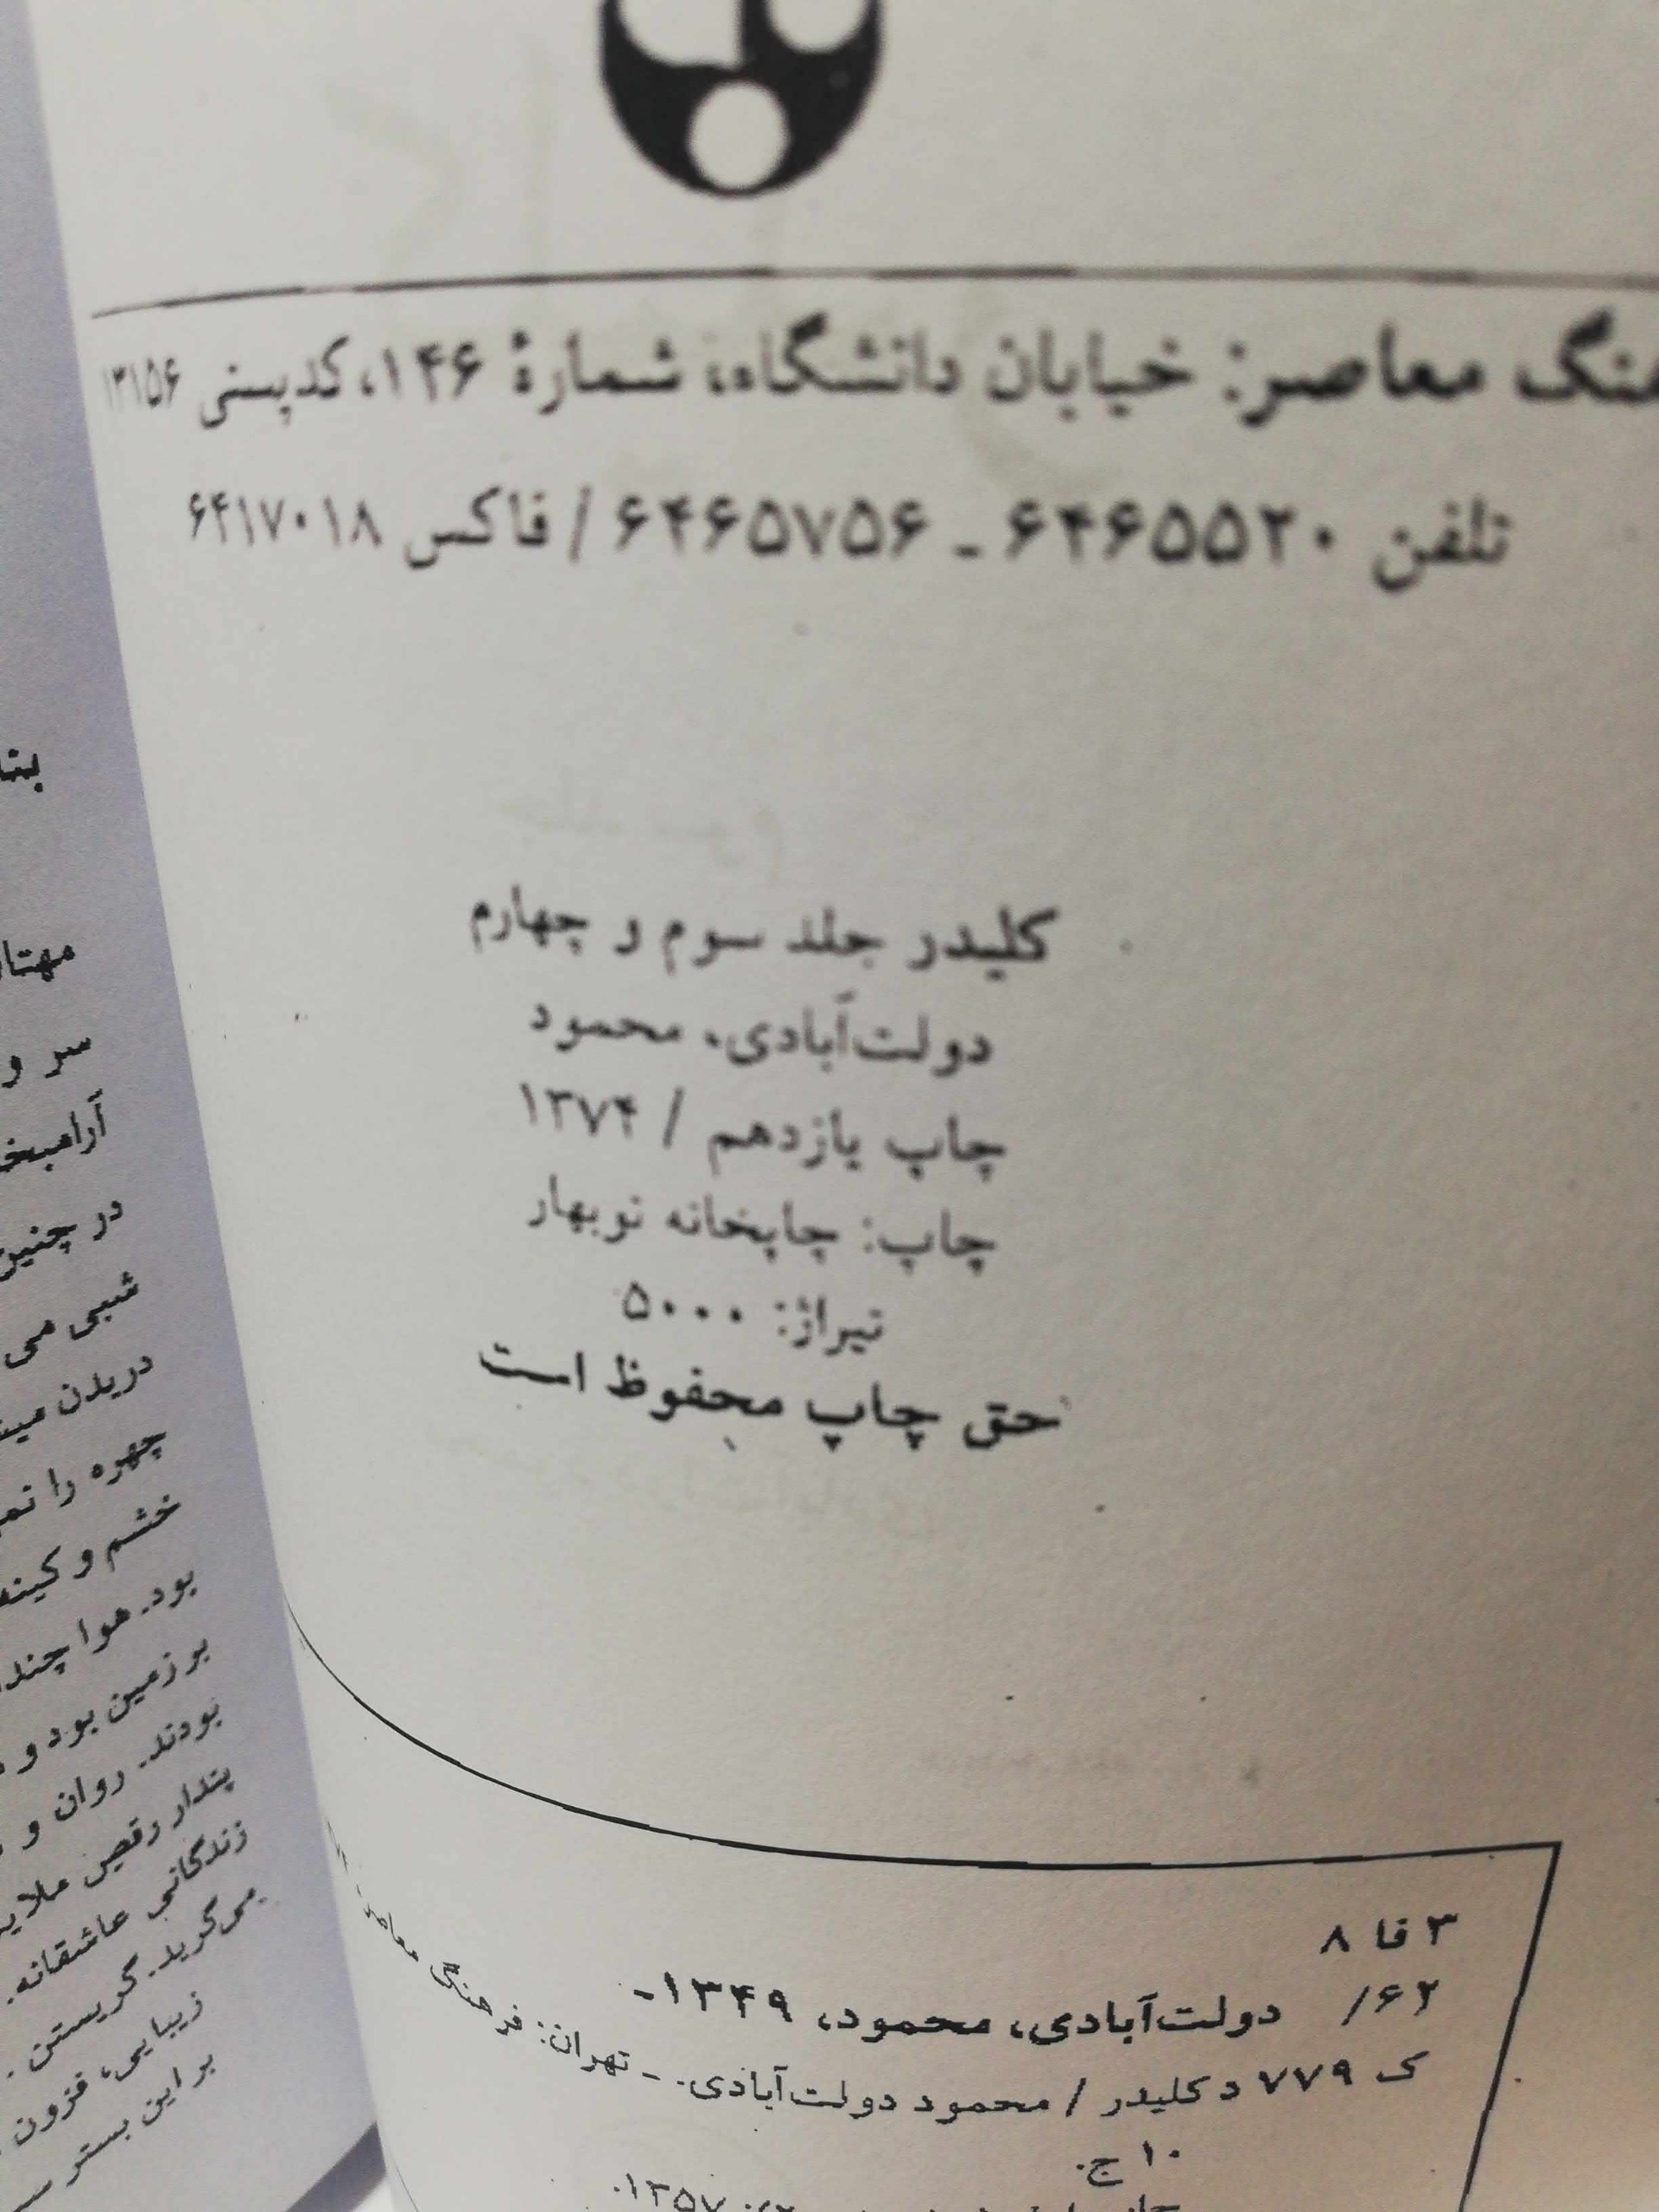 معاصر: خیابان دانشگاه، شمارهٔ ۱۴۶، کدپستی ۱۳۱۵۶
تلفن ۶۴۶۵۵۲۰ ـ ۶۴۶۵۷۵۶ / فاکس ۶۴۱۷۰۱۸
کلیدر جلد سوم و چهارم
دولت‌آبادی، محمود
چاپ یازدهم / ۱۳۷۴
چاپ: چاپخانه نوبهار
تیراژ: ۵۰۰۰
حق چاپ محفوظ است
۳ فا ۸
۶۲/ دولت‌آبادی، محمود، ۱۳۴۹ـ
ک ۷۷۹ د کلیدر / محمود دولت‌آبادی. ـ تهران: فرهنگ معاصر
۱۰ ج.
سر و
در چنین
شبی می
دریدن
چهره را
خشم و کینه
بود. هوا
بر زمین بود و
بودند. روان و
پندار رقص
زندگانی عاشقانه.
می‌گرید. گریستن
زیبایی، فزون
بر این بستر